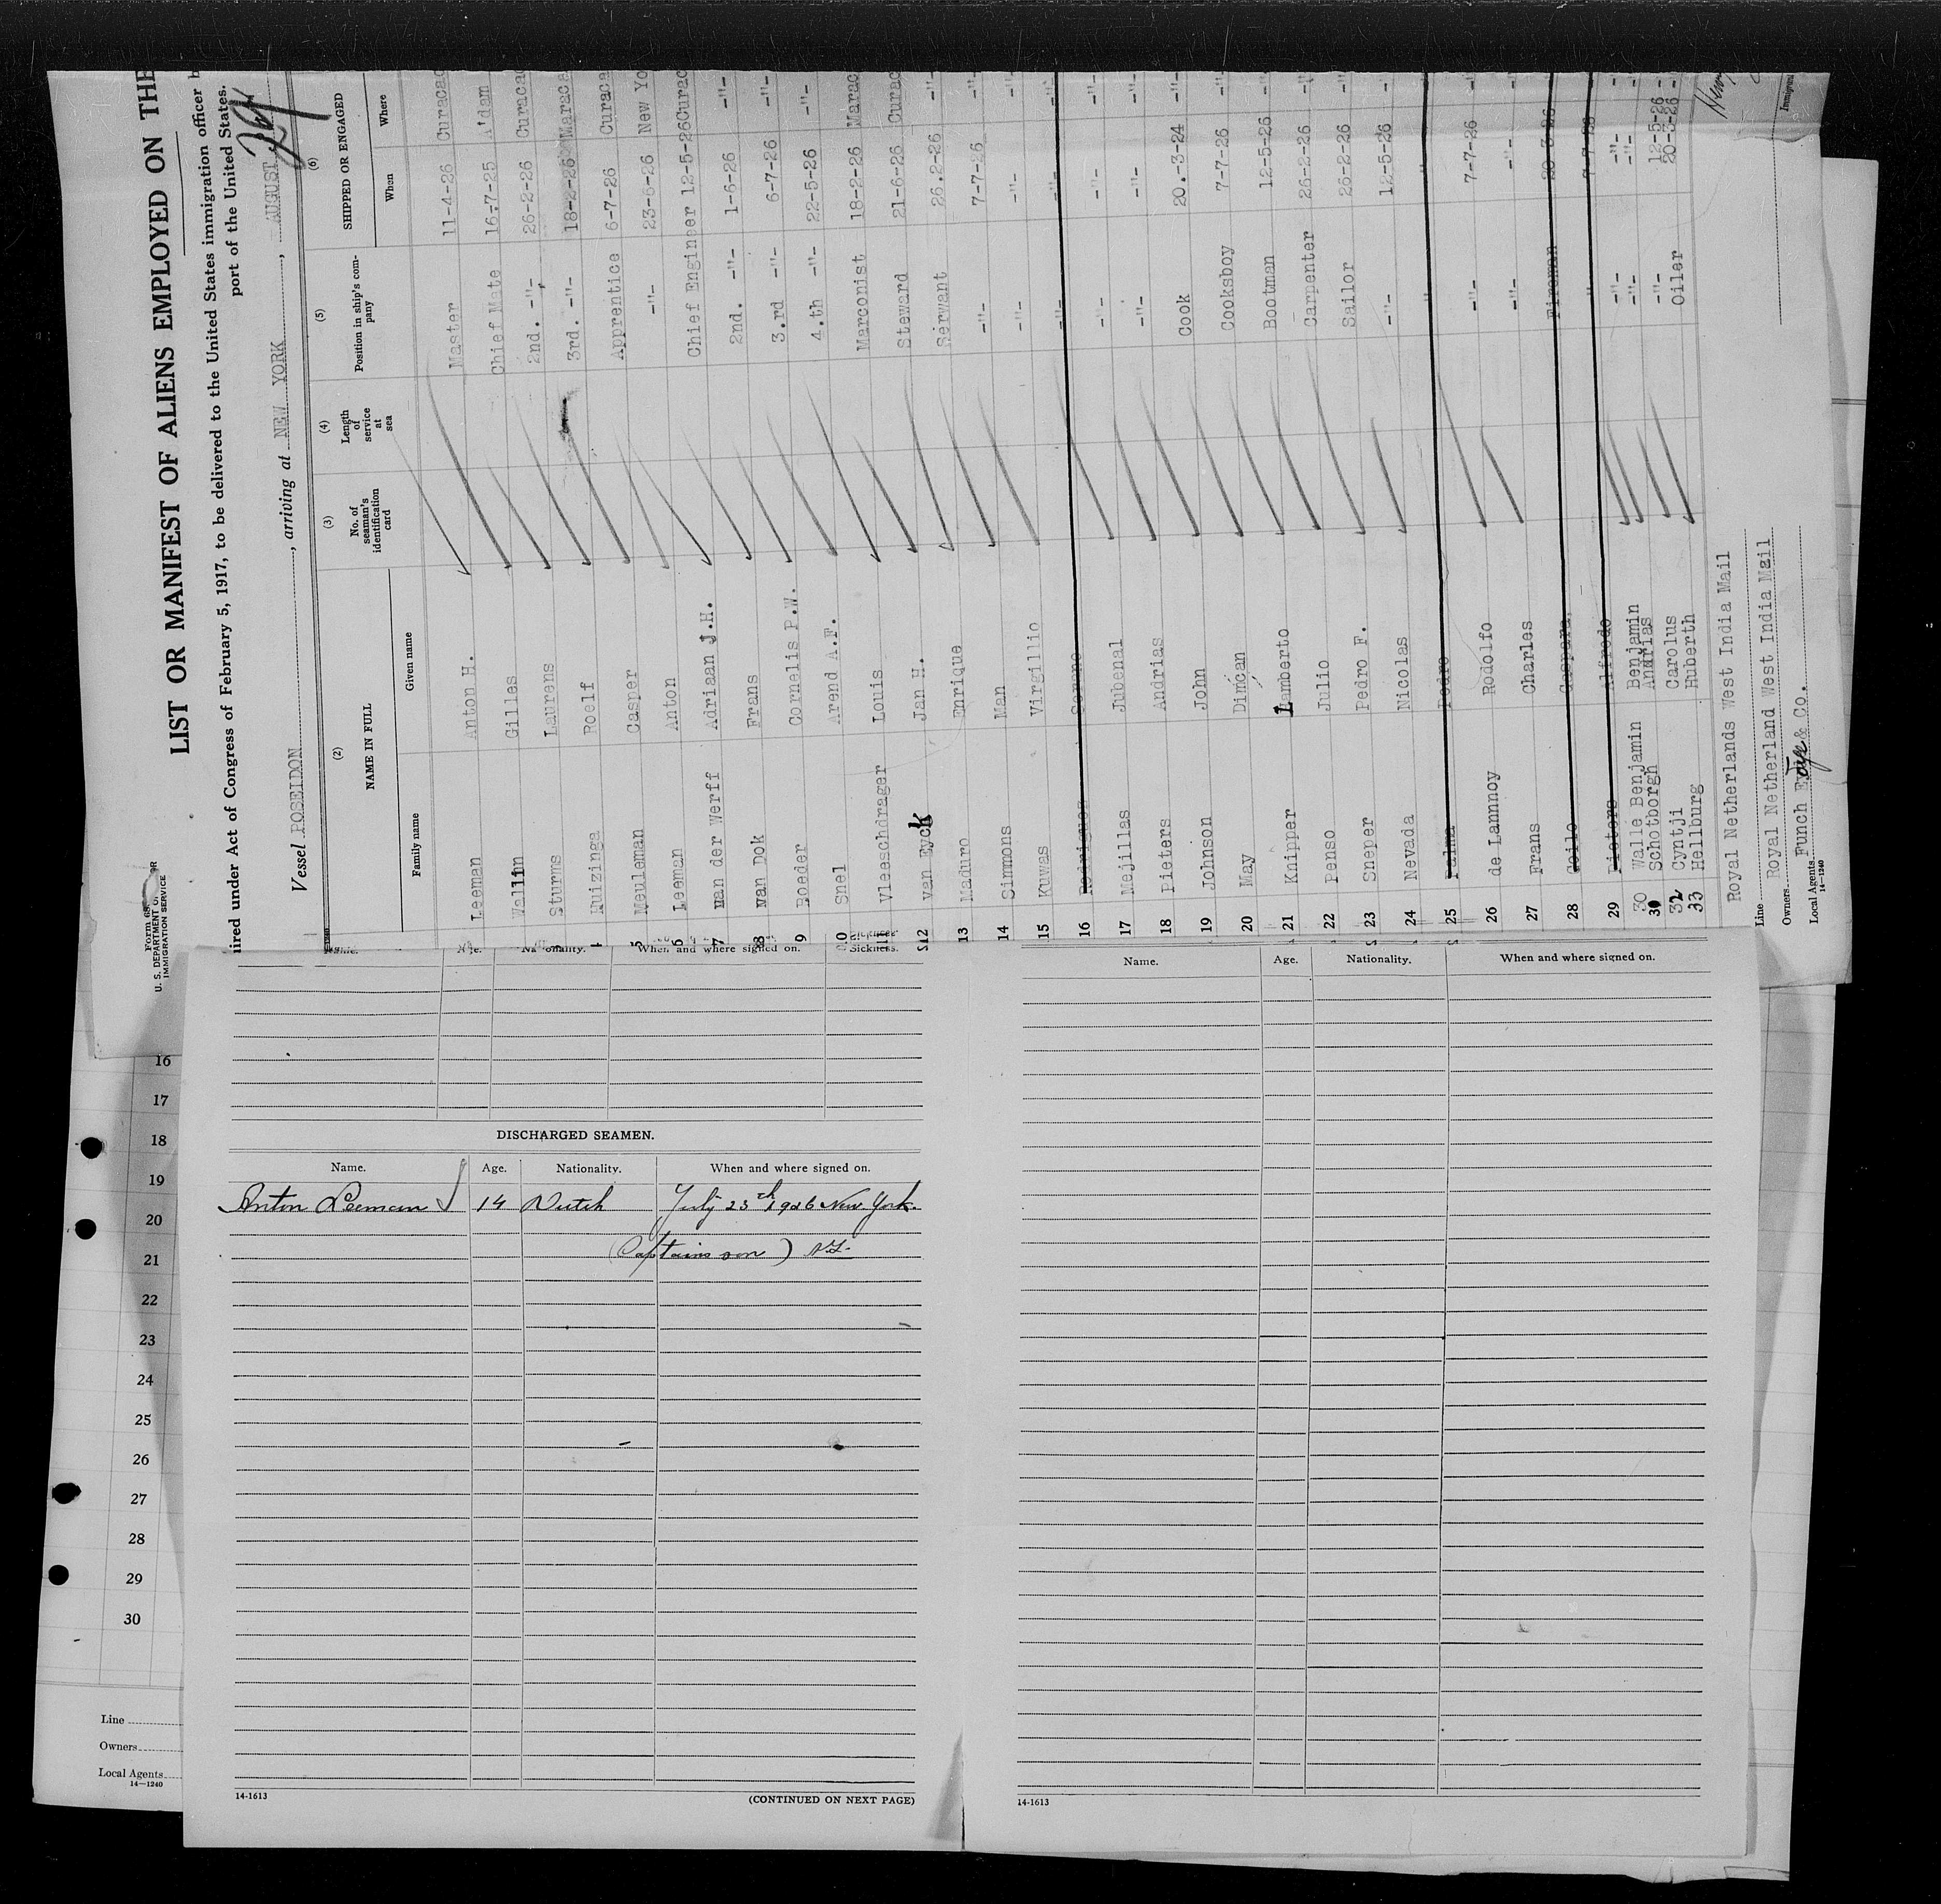 Form 689
U. S. DEPARTMENT O
IMMIGRATION SERVICE
LIST OR MANIFEST OF ALIENS EMPLOYED ON THE
uired under Act of Congress of February 5, 1917, to be delivered to the United States immigration officer b
port of the United States.
Vessel POSEIDON, arriving at NEW YORK, AUGUST
(2) (3) (4) (5) (6)
NAME IN FULL No. of seaman's identification card Length of service at sea Position in ship's com- pany SHIPPED OR ENGAGED
Family name Given name When Where
Leeman Anton H. Master 11-4-26 Curacao
Wallin Gilles Chief Mate 16-7-25 A'dam
Sturms Laurens 2nd. -"- 26-2-26 Curacao
Huizinga Roelf 3rd. -"- 18-2-26 Marac
5 Meuleman Casper Apprentice 6-7-26 Curaca
6 Leeman Anton -"- 23-6-26 New Yo
7 van der Werff Adriaan J.H. Chief Engineer 12-5-26 Curac
8 van Dok Frans 2nd. -"- 1-6-26 -"-
9 Roeder Cornelis P.W. 3.rd -"- 6-7-26 -"-
10 Snel Arend A.F. 4.th -"- 22-5-26 -"-
11 Vleeschdrager Louis Marconist 18-2-26 Marac
12 van Eyck Jan H. Steward 21-6-26 Curac
13 Maduro Enrique Servant 26.2-26 -"-
14 Simmons Man -"- 7-7-26 -"-
15 Kuwas Virgillio -"- -"- -"-
16 Rodriguez -"- -"- -"-
17 Mejillas Jubenal -"- -"- -"-
18 Pieters Andrias -"- -"- -"-
19 Johnson John Cook 20.-3-24 -"-
20 May Dincan Cooksboy 7-7-26 -"-
21 Knipper Lamberto Bootman 12-5-26 -"-
22 Penso Julio Carpenter 26-2-26 -"-
23 Sneper Pedro F. Sailor 26-2-26 -"-
24 Nevada Nicolas -"- 12-5-26 -"-
25 Palma Pedro " "
26 de Lannnoy Rodolfo -"- 7-7-26 -"-
27 Frans Charles -"- -"- -"-
28 Coilo Fireman 20-3-26
29 Pieters Alfredo " 7-7-26
30 Walle Benjamin Benjamin -"- -"- -"-
31 Schotborgh Andrias -"- -"- -"-
32 Cyntji Carolus -"- 12-5-26 -
33 Hellburg Huberth Oiler 20-3-26 -
Line Royal Netherlands West India Mail
Owners Royal Netherland West India Mail
Local Agents Funch Edye & Co.
14—1240
Immigrant
Name. Age. Nationality. When and where signed on. Sickness.
DISCHARGED SEAMEN.
Name. Age. Nationality. When and where signed on.
Anton Leeman 14 Dutch July 23th 1926 New York.
(Captains son)
14-1613
(CONTINUED ON NEXT PAGE)
Name. Age. Nationality. When and where signed on.
14-1613
16
17
18
19
20
21
22
23
24
25
26
27
28
29
30
Line
Owners
Local Agents
14—1240